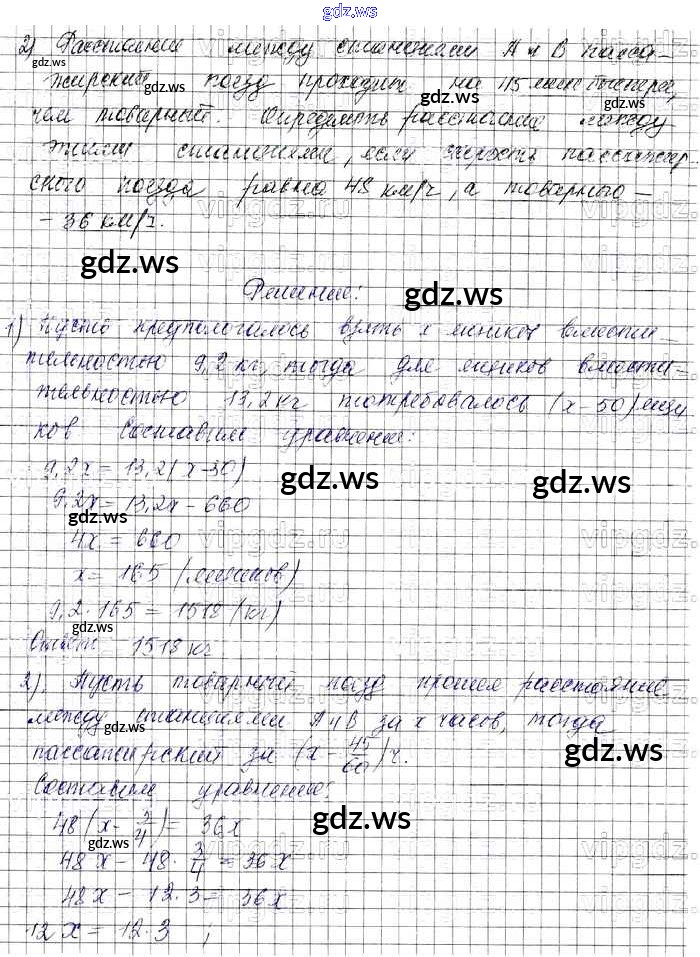 gdz.ws
2) Расстояние между станциями А и В пасса-
жирский поезд проходит на 45 мин быстрее,
чем товарный. Определить расстояние между
этими станциями, если скорость пассажир
ского поезда равна 48 км/ч, а товарного -
- 36 км/ч.
gdz.ws gdz.ws
Решение:
1) Пусть предпологалось взять х ящиков вмести-
тельностью 9,2 кг, тогда для ящиков вмести-
тельностью 13,2 кг потребовалось (х - 50) ящи
ков Составим уравнение:
9,2х = 13,2(х-50)
9,2х = 13,2х - 660
4х = 660
х = 165 (ящиков)
9,2 · 165 = 1518 (кг)
Ответ 1518 кг
2). Пусть товарный поезд прошел расстояние
между станциями А и В за х часов, тогда
пассажирский за (х - 45/60) ч.
Составим уравнение:
48(х - 3/4) = 36х
48х - 48 · 3/4 = 36х
48х - 12·3 = 36х
12х = 12·3 ;